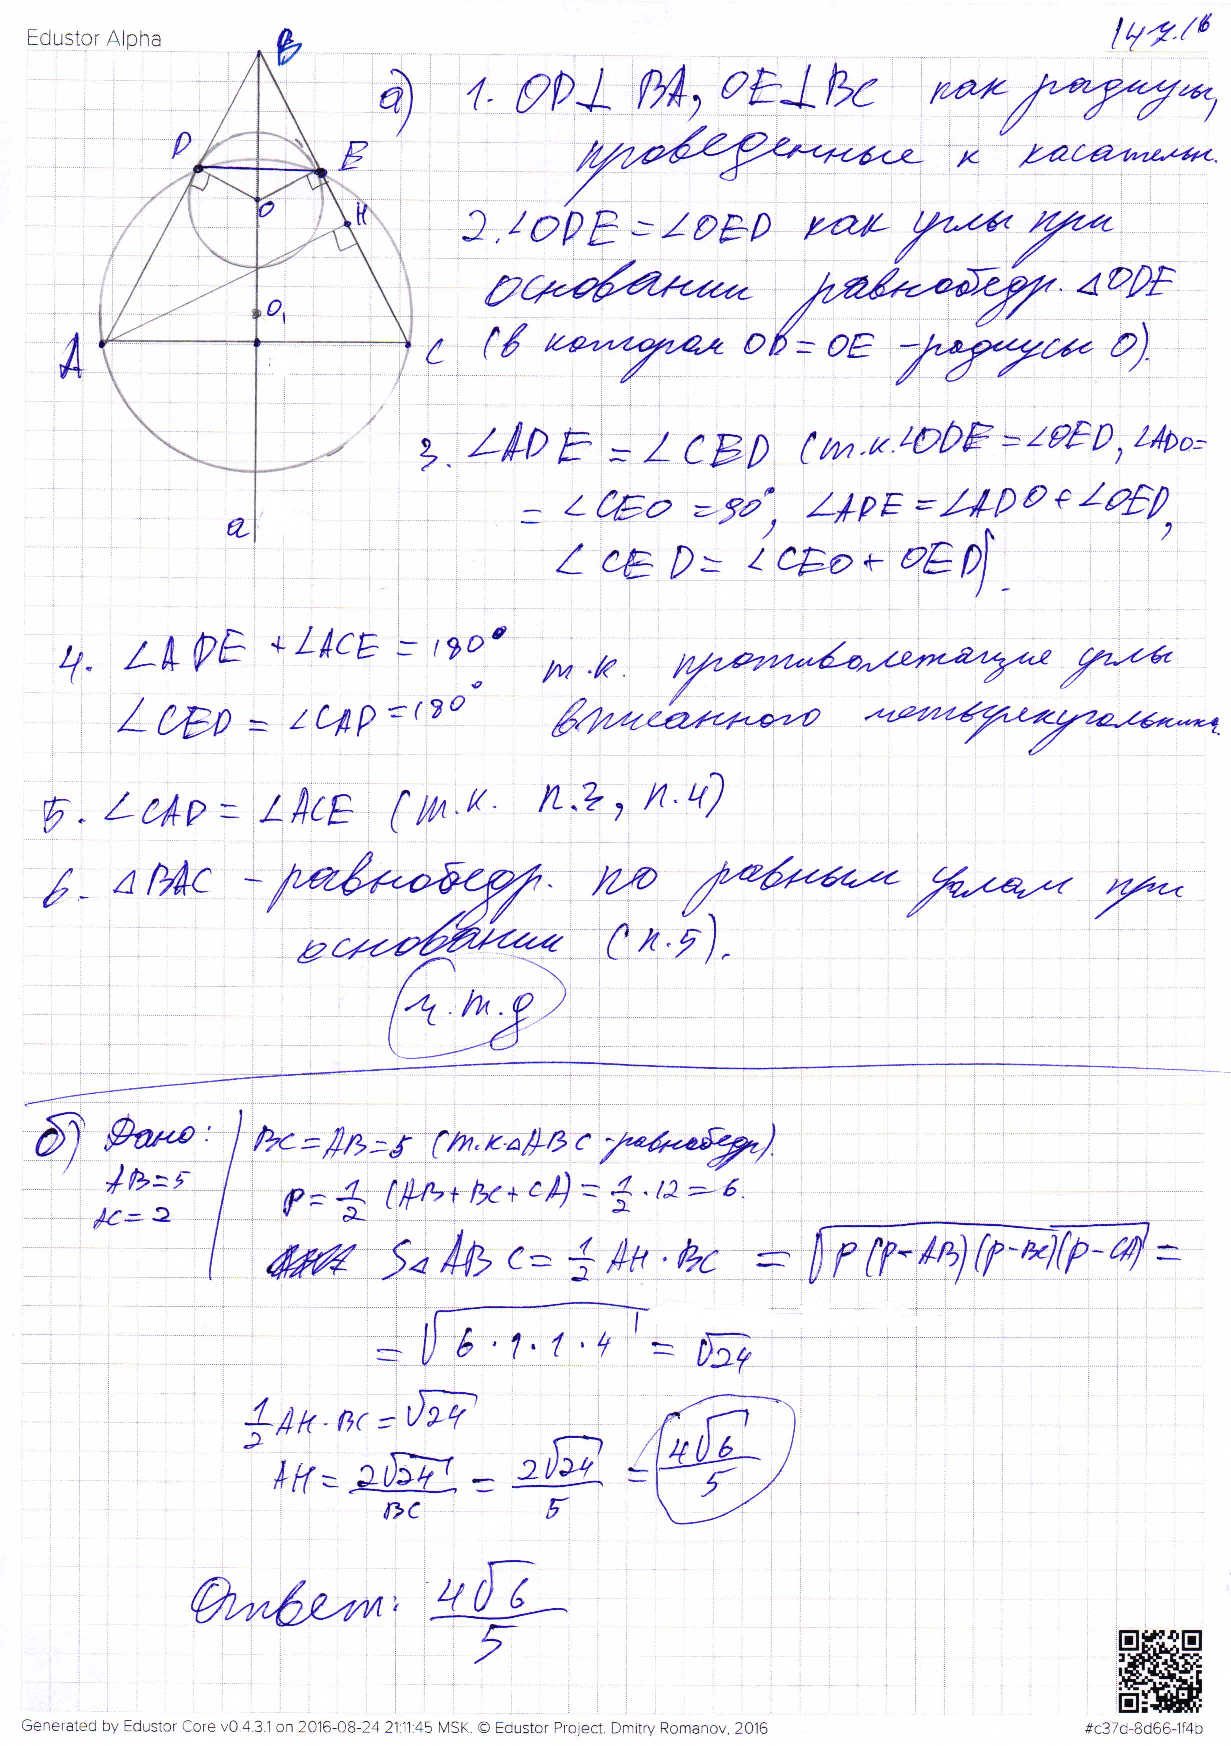 Edustor Alpha
147.16
B
D
E
O
H
O₁
A
C
a
а) 1. OD⊥ BA, OE⊥BC как радиусы,
проведенные к касательн.
2. ∠ODE = ∠OED как углы при
основании равнобедр. △ODE
(в котором OD = OE - радиусы O).
3. ∠ADE = ∠CED (т.к. ∠ODE = ∠OED, ∠ADO=
= ∠CEO = 90°, ∠ADE = ∠ADO + ∠OED,
∠CED = ∠CEO + OED).
4. ∠ADE + ∠ACE = 180° т.к. противолежащие углы
∠CED = ∠CAD = 180° вписанного четырехугольника.
5. ∠CAD = ∠ACE (т.к. п.3, п.4)
6. △BAC - равнобедр. по равным углам при
основании (п.5).
ч.т.д
б) Дано:
AB=5
AC=2
BC=AB=5 (т.к. △ABC - равнобедр).
p = 1/2 (AB+BC+CA) = 1/2 · 12 = 6.
S△ABC = 1/2 AH · BC = √(p(p-AB)(p-BC)(p-CA)) =
= √(6·1·1·4) = √24
1/2 AH · BC = √24
AH = 2√24/BC = 2√24/5 = 4√6/5
Ответ: 4√6/5
Generated by Edustor Core v0.4.3.1 on 2016-08-24 21:11:45 MSK. © Edustor Project. Dmitry Romanov, 2016
#c37d-8d66-1f4b